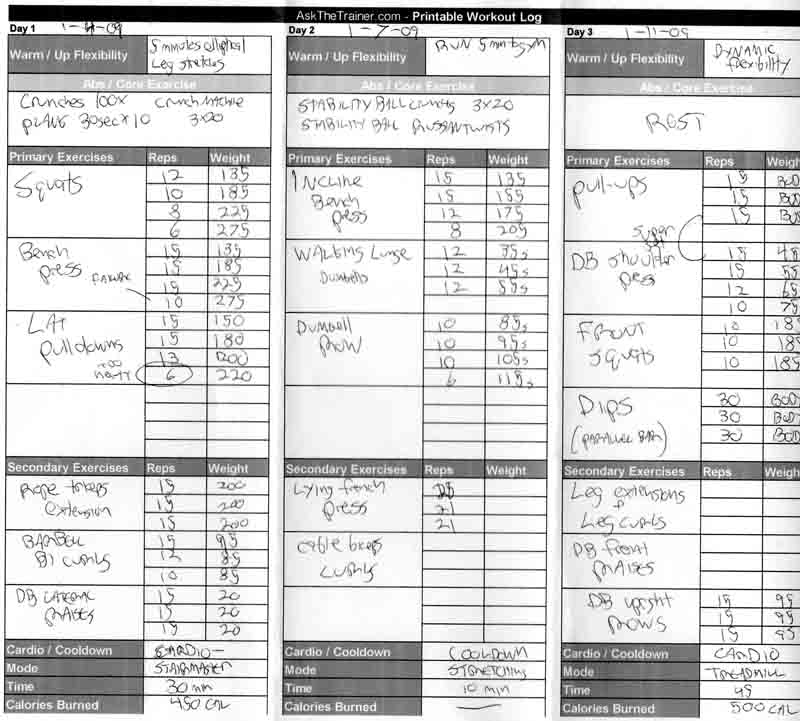 AskTheTrainer.com - Printable Workout Log
Day 1
Warm / Up Flexibility
5 minutes elliptical
Leg stretches
Abs / Core Exercise
Crunches 100x Crunch Machine
plank 30sec x 10 3x20
Primary Exercises Reps Weight
Squats
12 135
10 185
8 225
6 275
Bench press
15 135
15 185
15 225
FAILURE
10 275
LAT pulldowns
15 150
15 180
13 200
too heavy
6 220
Secondary Exercises Reps Weight
Rope triceps extension
15 200
15 200
15 200
BARBELL Bi curls
15 95
12 85
10 85
DB LATERAL RAISES
15 20
15 20
15 20
Cardio / Cooldown CARDIO
Mode STAIRMASTER
Time 30 min
Calories Burned 450 CAL
Day 2 1-7-09
Warm / Up Flexibility
RUN 5 min to gym
Abs / Core Exercise
STABILITY BALL crunches 3x20
STABILITY BALL RUSSIAN TWISTS
Primary Exercises Reps Weight
INCLINE Bench press
15 135
15 155
12 175
8 205
WALKING Lunge Dumbells
12 35s
12 45s
12 55s
Dumbell Row
10 85s
10 95s
10 105s
6 115s
Secondary Exercises Reps Weight
Lying french press
21
21
cable biceps curls
Cardio / Cooldown COOLDOWN
Mode STRETCHING
Time 10 min
Calories Burned —
Day 3 1-11-09
Warm / Up Flexibility
DYNAMIC flexibility
Abs / Core Exercise
REST
Primary Exercises Reps Weigh
pull-ups
15 BOD
15 BOD
15 BOD
super set
DB shoulder press
15 45
15 55
12 65
10 75
FRONT squats
10 185
10 185
10 185
Dips
(PARALLEL BAR)
30 BOD
30 BOD
30 BOD
Secondary Exercises Reps Weigh
Leg extensions + Leg curls
DB front RAISES
DB upright ROWS
15 95
15 95
15 95
Cardio / Cooldown CARDIO
Mode TREADMILL
Time 45
Calories Burned 500 CAL